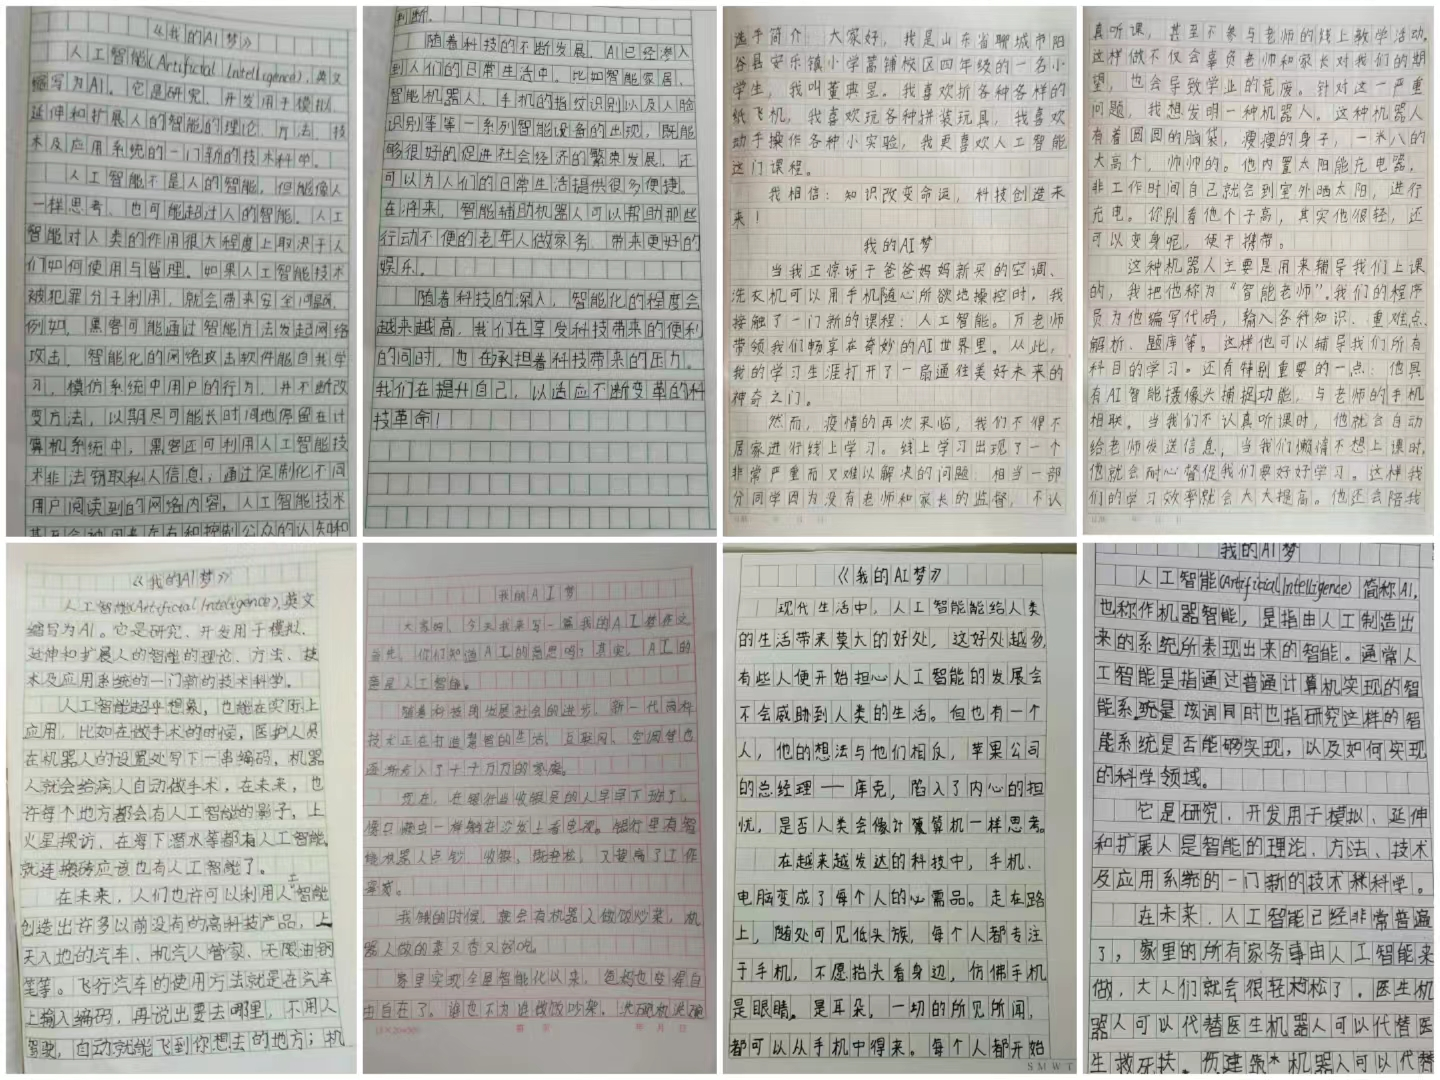 《我的AI梦》
人工智能(Artificial Intelligence),英文
缩写为AI。它是研究、开发用于模拟、
延伸和扩展人的智能的理论、方法、技
术及应用系统的一门新的技术科学。
人工智能不是人的智能，但能像人
一样思考、也可能超过人的智能。人工
智能对人类的作用很大程度上取决于人
们如何使用与管理。如果人工智能技术
被犯罪分子利用，就会带来安全问题，
例如，黑客可能通过智能方法发起网络
攻击，智能化的网络攻击软件能自我学
习，模仿系统中用户的行为，并不断改
变方法，以期尽可能长时间地停留在计
算机系统中，黑客还可利用人工智能技
术非法窃取私人信息；通过定制化不同
用户阅读到的网络内容，人工智能技术
甚至会被用来左右和控制公众的认知和
判断。
随着科技的不断发展，AI已经渗入
到人们的日常生活中。比如智能家居、
智能机器人、手机的指纹识别以及人脸
识别等等一系列智能设备的出现，既能
够很好的促进社会经济的繁荣发展，还
可以为人们的日常生活提供很多便捷。
在将来，智能辅助机器人可以帮助那些
行动不便的老年人做家务、带来更好的
娱乐。
随着科技的深入，智能化的程度会
越来越高，我们在享受科技带来的便利
的同时，也在承担着科技带来的压力。
我们在提升自己，以适应不断变革的科
技革命！
选手简介 大家好，我是山东省聊城市阳
谷县安乐镇小学蒿铺校区四年级的一名小
学生，我叫董典昱。我喜欢折各种各样的
纸飞机，我喜欢玩各种拼装玩具，我喜欢
动手操作各种小实验，我更喜欢人工智能
这门课程。
我相信：知识改变命运，科技创造未
来！
我的AI梦
当我正惊讶于爸爸妈妈新买的空调、
洗衣机可以用手机随心所欲地操控时，我
接触了一门新的课程：人工智能。万老师
带领我们畅享在奇妙的AI世界里。从此，
我的学习生涯打开了一扇通往美好未来的
神奇之门。
然而，疫情的再次来临，我们不得不
居家进行线上学习。线上学习出现了一个
非常严重而又难以解决的问题：相当一部
分同学因为没有老师和家长的监督，不认
真听课，甚至不参与老师的线上教学活动。
这样做不仅会辜负老师和家长对我们的期
望，也会导致学业的荒废。针对这一严重
问题，我想发明一种机器人。这种机器人
有着圆圆的脑袋，瘦瘦的身子，一米八的
大高个，帅帅的。他内置太阳能充电器，
非工作时间自己就会到室外晒太阳，进行
充电。你别看他个子高，其实他很轻，还
可以变身呢，便于携带。
这种机器人主要是用来辅导我们上课
的，我把他称为“智能老师”。我们的程序
员为他编写代码，输入各种知识、重难点
解析、题库等。这样他可以辅导我们所有
科目的学习。还有特别重要的一点：他具
有AI智能摄像头捕捉功能，与老师的手机
相联。当我们不认真听课时，他就会自动
给老师发送信息，当我们懒惰不想上课时，
他就会耐心督促我们要好好学习。这样我
们的学习效率就会大大提高。他还会陪我
《我的AI梦》
人工智能(Artificial Intelligence),英文
缩写为AI。它是研究、开发用于模拟、
延伸和扩展人的智能的理论、方法、技
术及应用系统的一门新的技术科学。
人工智能超乎想象，也能在实际上
应用，比如在做手术的时候，医护人员
在机器人的设置处写下一串编码，机器
人就会给病人自动做手术，在未来，也
许每个地方都会有人工智能的影子，上
火星探访，在海下潜水等都有人工智能，
就连搬砖应该也有人工智能了。
在未来，人们也许可以利用人工智能
创造出许多以前没有的高科技产品，上
天入地的汽车、机汽人管家、无限油钢
笔等。飞行汽车的使用方法就是在汽车
上输入编码，再说出要去哪里，不用人
驾驶，自动就能飞到你想去的地方；机
我的AI梦
大家好、今天我来写一篇我的AI梦作文
首先，你们知道AI的意思吗？其实，AI的
意是人工智能。
随着科技的发展社会的进步，新一代高科
技术正在打造智慧的生活，互联网、空调等也
逐渐走入了千千万万的家庭。
现在，在银行业收银员的人早早下班了，
像只懒虫一样躺在沙发上看电视。银行里有智
能机器人点钞、收银，既轻松，又提高了工作
率。
我饿的时候，就会有机器人做饭炒菜，机
器人做的菜又香又好吃。
家里实现全屋智能化以来，爸妈也变得自
由自在了。谁也不为谁做饭吵架。洗碗机洗碗
《我的AI梦》
现代生活中，人工智能能给人类
的生活带来莫大的好处，这好处越多，
有些人便开始担心人工智能的发展会
不会威胁到人类的生活。但也有一个
人，他的想法与他们相反，苹果公司
的总经理——库克，陷入了内心的担
忧，是否人类会像计算机一样思考。
在越来越发达的科技中，手机、
电脑变成了每个人的必需品。走在路
上，随处可见低头族，每个人都专注
于手机，不愿抬头看身边，仿佛手机
是眼睛，是耳朵，一切的所见所闻，
都可以从手机中得来。每个人都开始
SMWT
我的AI梦
人工智能(Artificial Intelligence)简称AI，
也称作机器智能，是指由人工制造出
来的系统所表现出来的智能。通常人
工智能是指通过普通计算机实现的智
能系统是该词同时也指研究这样的智
能系统是否能够实现，以及如何实现
的科学领域。
它是研究、开发用于模拟、延伸
和扩展人是智能的理论、方法、技术
及应用系统的一门新的技术科学。
在未来、人工智能已经非常普遍
了，家里的所有家务事由人工智能来
做，大人们就会很轻松了。医生机
器人可以代替医生机器人可以代替医
生救死扶。伤建筑机器人可以代替